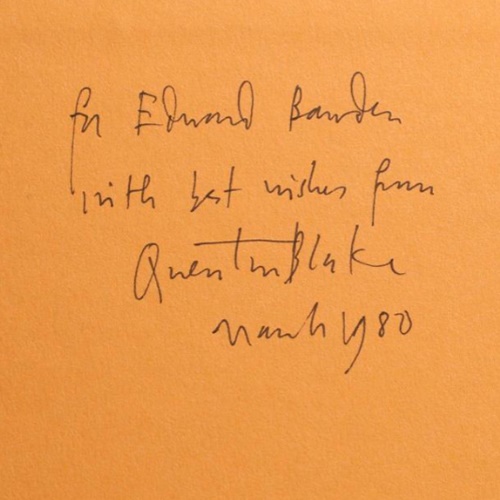 for Edward Bawden
with best wishes from
Quentin Blake
March 1980